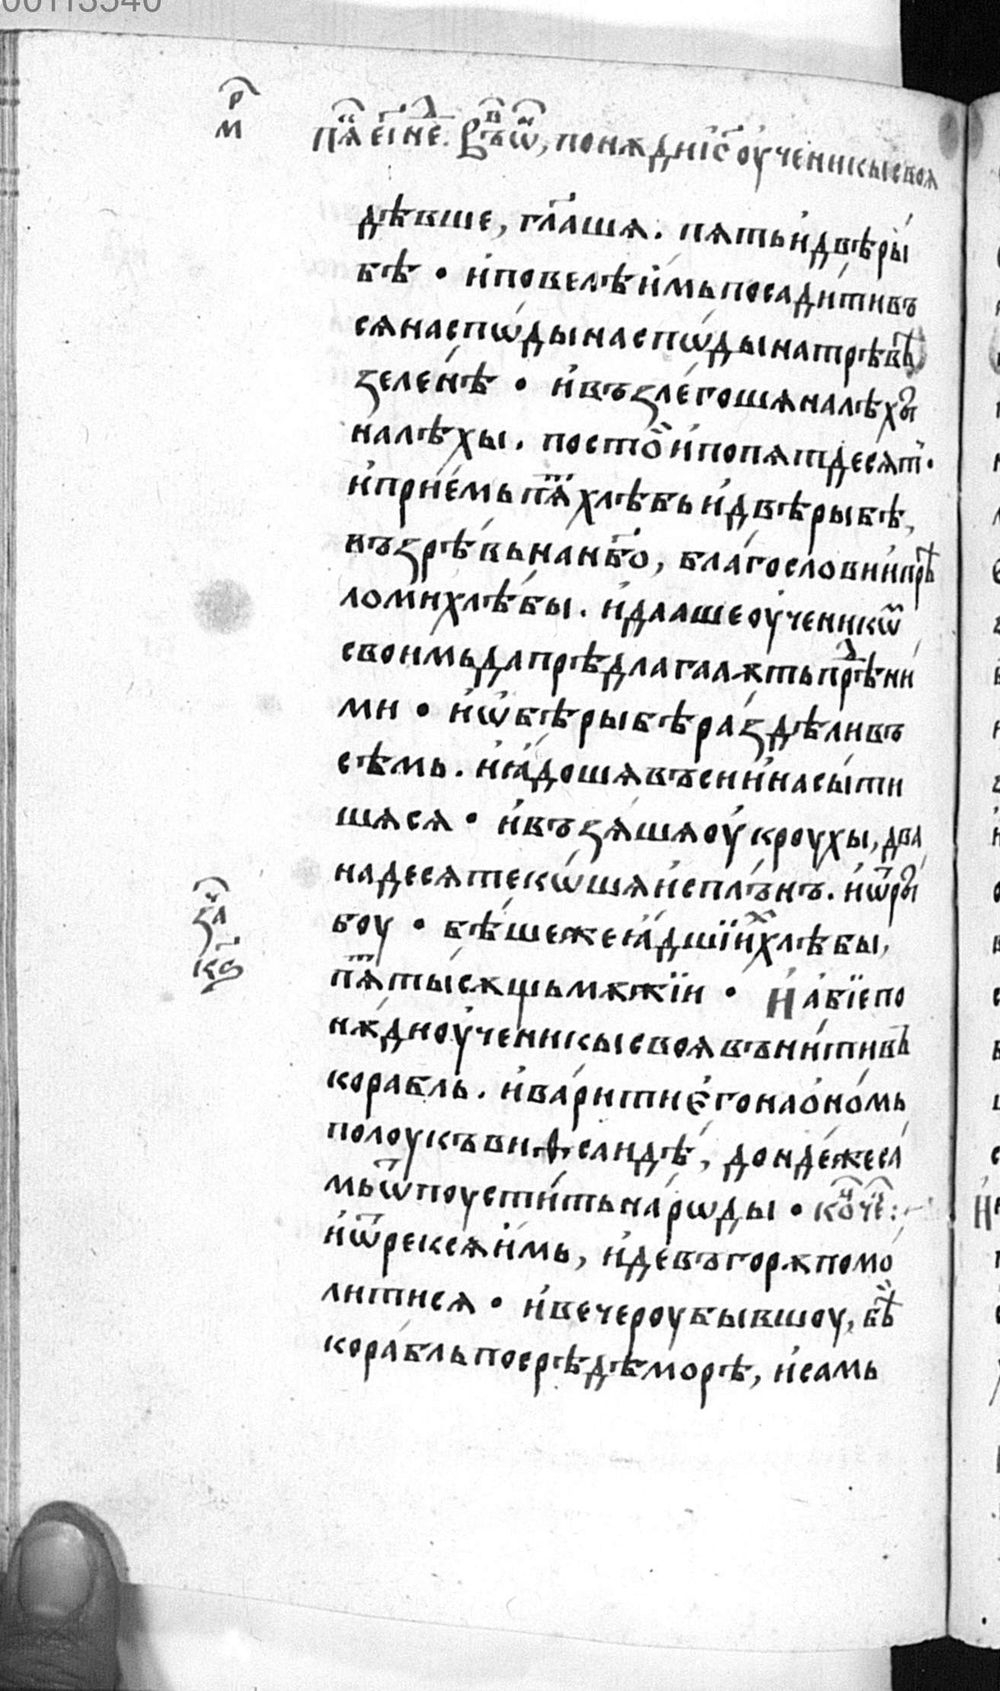 00113540
р
м
дѣвше, гл҃ашѧ. пѧть и двѣ ры
бѣ • и повелѣ имь посадити въ
сѧ на спѡды на спѡды на трѣвѣ
зеленѣ • и възлегошѧ на лѣхы
на лѣхы. по сто и по пѧтдесѧт •
и приемь пѧⷮ хлѣбь и двѣ рыбѣ,
възрѣвь на нб҃о, благослови и прѣ
ломи хлѣбы. и дааше оученикѡⷨ
своимь да прѣдлагаѫть прѣⷣ ни
ми • и ѡбѣ рыбѣ раздѣли въ
сѣмь. и ꙗдошѧ въси и насыти
шѧ сѧ • и възѧшѧ оукроухы, два
надесѧте кѡшѧ исплънъ. и ѿ ры
боу • бѣше же ꙗдшїиⷯ хлѣбы,
пѧⷮ тысѫщь мѫжїи • И абїе по
нѫди оученикы своѧ вънити въ
корабль. и варити его на ономь
полоу къ виѳсаидѣ, дондеже сⷶ
мь ѿпоустить нарѡды • коⷰ҇ че :
и ѿрек сѧ имь, иде въ горѫ помо
лити сѧ • и вечероу бывшоу, бѣ
корабль посрѣдѣ морѣ, и самь
заⷱ